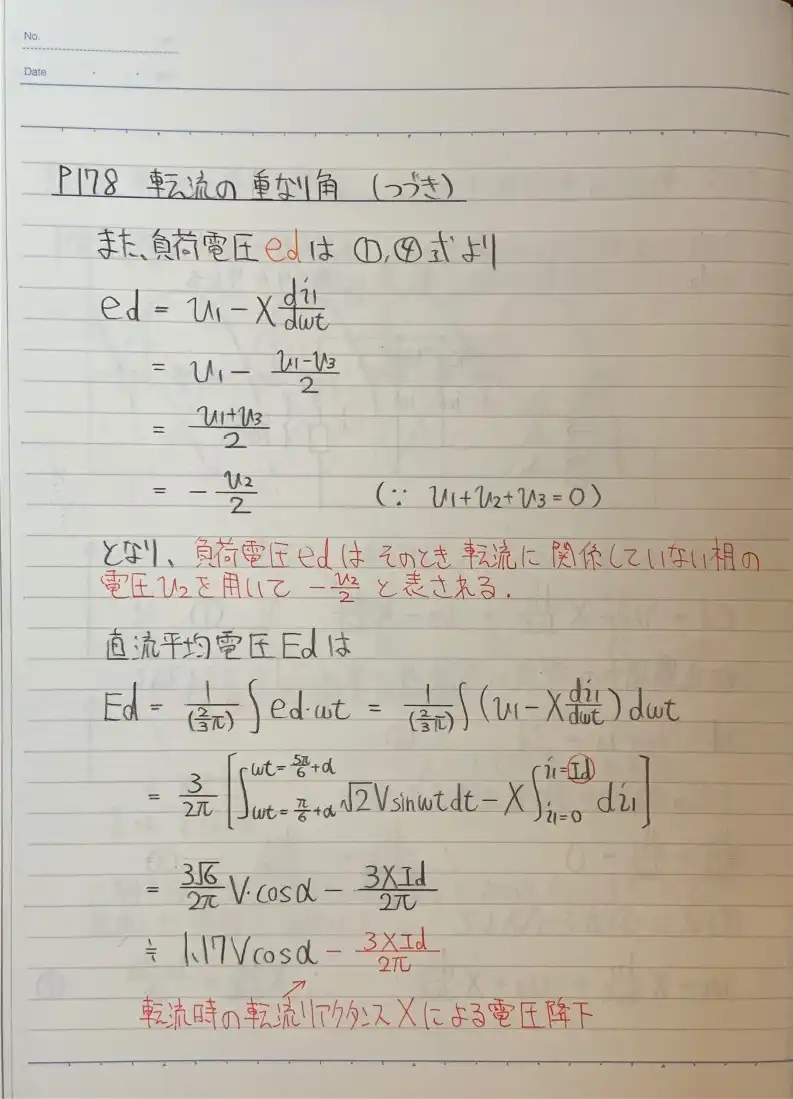 No.
Date
P178 転流の重なり角 (つづき)
また、負荷電圧edは ①,④式より
ed = v₁ - X di₁/dωt
= v₁ - (v₁-v₃)/2
= (v₁+v₃)/2
= - v₂/2 (∵ v₁+v₂+v₃=0)
となり、負荷電圧edはそのとき転流に関係していない相の
電圧v₂を用いて -v₂/2 と表される.
直流平均電圧Edは
Ed = 1/(2/3π) ∫ed・ωt = 1/(2/3π) ∫(v₁ - X di₁/dωt) dωt
= 3/2π [∫_{ωt=π/6+α}^{ωt=5π/6+α} √2Vsinωtdt - X∫_{i₁=0}^{i₁=Id} di₁]
= 3√6/2π V・cosα - 3XId/2π
≒ 1.17Vcosα - 3XId/2π
転流時の転流リアクタンスXによる電圧降下